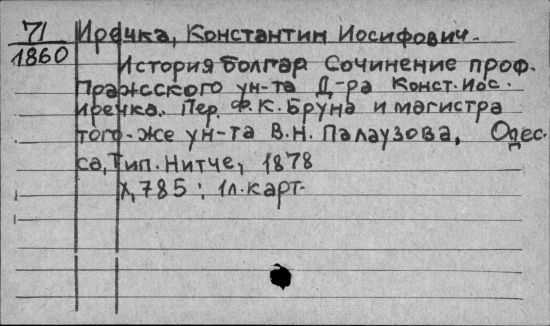 71
1860
Иречка, Константин Иосифович.
История Болгар Сочинение проф.
Пражсского ун-та Д-ра Конст. Иос.
Иречка. Пер. Ф.К. Бруна и магистра
того-же ун-та В.Н. Палаузова, Одес.
са, Тип. Нитче, 1878
X, 785; 1л. карт.